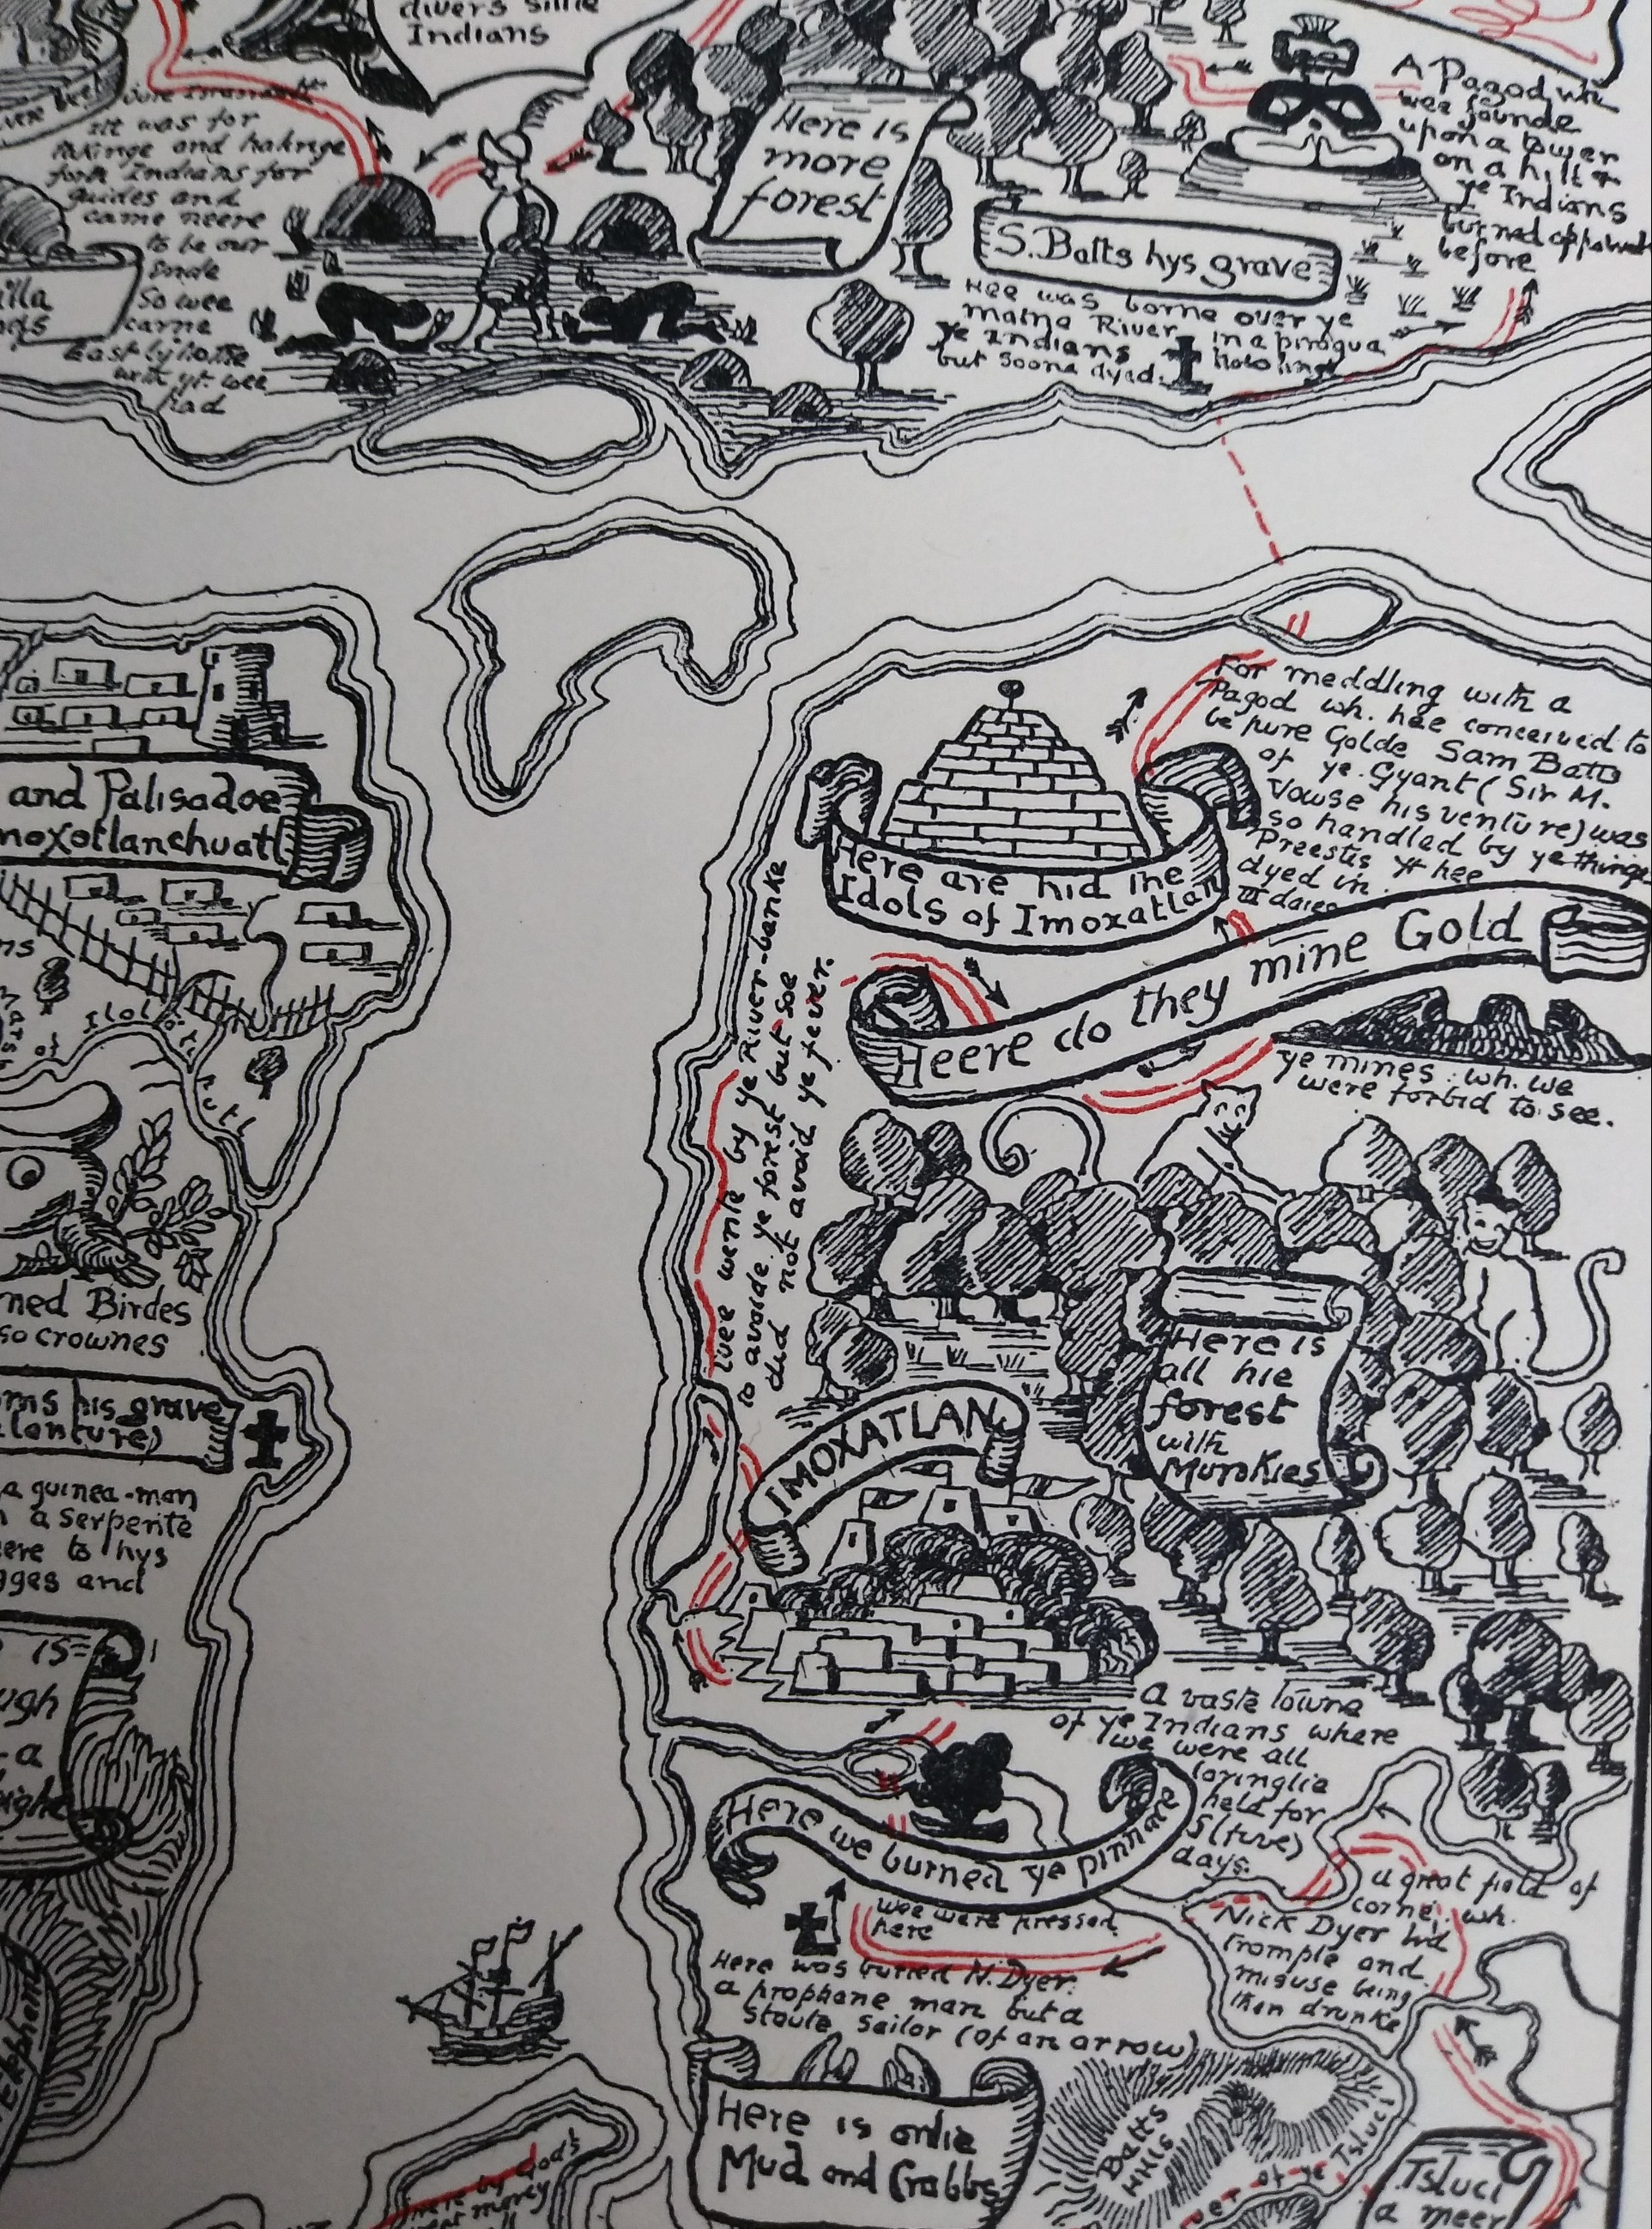 divers sillie
Indians
Itt was for
takinge and
Indians for
guides and
came neere
to be our
ende
So wee
came
Eastlyhome
with yt. wee
had
Here is
more
forest
A Pagod wh.
wee founde
upon a tower
on a hill &
ye Indians
burned
before
S. Batts hys grave
Hee was borne over ye
maine River in a piragua
ye Indians howling
but soone dyed.
and Palisadoe
moxotlanchuatl
For meddling with a
Pagod wh. hee conceived to
be pure Golde Sam Batts
of ye. Gyant (Sir M.
Vowse his venture) was
so handled by ye thinge
Preestes yt hee
dyed in
III daies
Here are hid the
Idols of Imoxatlan
Heere do they mine Gold
ye mines: wh. we
were forbid to see.
wee wente by ye River-banke
to avoide ye forest but soe
did not avoid ye fever.
of
ned Birdes
so crownes
his grave
a guinea-man
a Serpente
to hys
and
is
ugh
a
Here is
all hie
forest
with
Munkies
IMOXATLAN
A vaste Towne
of ye Indians where
we were all
lovinglie
held for
5 (five)
days.
Here we burned ye pinnace
a great field of
corne: wh.
Nick Dyer did
trample and
misuse being
then drunke
wee were pressed
here
Here was buried N. Dyer:
a prophane man but a
stoute sailor (of an arrow)
Here is onlie
Mud and Crabbs
Batts
Hills
of ye Tsluci
Tsluci
a meer
here by God's